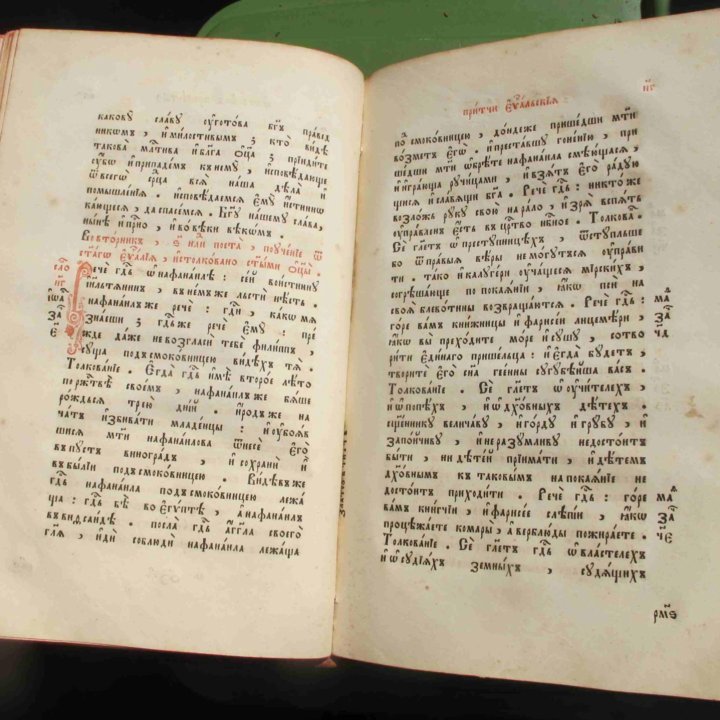 каковꙋ славꙋ ᲂу҆готова бг҃ъ пра́вед
никомъ, и҆ милостивымъ ⁘ кто видѣ
такова мл҃тива и҆ бл҃га ѻ҆ц҃а ⁘ прїидите
и҆ припаде́мъ къ немꙋ, и҆сповѣдающе
ѿ всего̀ ср҃ца всѧ̀ наша дѣла̀ и҆
помышле́нїѧ. и҆сповѣдаемсѧ е҆мꙋ̀ и҆стинно
кающесѧ, да спасе́мсѧ. бг҃ꙋ нашемꙋ слава,
ны́нѣ и҆ при́сно, и҆ во вѣ́ки вѣкомъ.
Во вторникъ, поста̀, поᲂуче́нїе ѿ
ст҃агѡ є҆ѵⷢ҇лїѧ, и҆столковано ст҃ы́ми ѻ҆ц҃ы.
сло
Речѐ гдⷭ҇ь ѡ҆ нафана́илѣ : се́й вои́стиннꙋ
н҃г
і҆и҃льтѧнинъ, въ не́мъ же льсти нѣ́сть.
і҆ѡⷩ҇
нафана́илъ же речѐ : гдⷭ҇и, какѡ мѧ̀
заⷱ҇
знаеши ⁘ гдⷭ҇ь же речѐ е҆мꙋ̀ : пре́
є҃
жде даже не возгласи тебѐ филиппъ,
сꙋща под смоковницею ви́дѣхъ тѧ̀.
Толкова́нїе. Є҆гда̀ гдⷭ҇ь и҆мѣ̀ второе лѣ́то
по ржⷭ҇твѣ̀ свое́мъ, нафана́илъ же бѧ́ше
рожде́сѧ трею̀ дні́й. и҆́родъ же на
ча́тъ и҆збива́ти младенцы : и҆ ᲂу҆боѧ́в
шисѧ мт҃и нафана́илова ѿнесѐ е҆го̀
въ пꙋстъ виноградъ, и҆ сохрани̂ и҆̀
въ бы́лїи под смоковницею. Ви́дѣв же
гдⷭ҇ь нафана́ила под смоковницею лежа́
ща : гдⷭ҇ь бѣ̀ во е҆гѵ́птѣ, а҆ нафана́илъ
въ виѳсаидѣ. посла̀ гдⷭ҇ь а҆́гг҃ла своего̀
гл҃ѧ, и҆дѝ соблюдѝ нафана́ила лежа́ща
притчи є҆ѵⷢ҇льскїѧ
н҃г
по смоковницею, до́ндеже прише́дши мт҃и
возметъ є҆го̀. и҆ преста́вшꙋ гоне́нїю, при
ше́дши мт҃и ѡ҆брѣ́те нафана́ила смѣю́щасѧ,
и҆ и҆гра́юща рꙋчицами, и҆ взѧ́тъ е҆го̀ ра́дꙋю
щисѧ и҆ сла́вѧщи бг҃а. Речѐ гдⷭ҇ь : никто́же
возложь рꙋкꙋ свою̀ на ра́ло, и҆ зрѧ̀ вспѧть
ᲂу҆пра́вленъ є҆сть въ црⷭ҇тво нбⷭ҇ное. Толкова̀.
Сѐ гл҃етъ ѡ҆ престꙋ́пницѣхъ, ѿстꙋпльше
бо ѿ пра́выѧ вѣ́ры не могꙋтьсѧ ᲂу҆пра́ви
ти. тако и҆ калꙋгери ᲂу҆ча́щесѧ мі́рскихъ,
согрѣша́юще по покаѧ́нїи, ꙗ҆́кѡ пси на
своѧ̀ блево́тины возвраща́ютсѧ. Речѐ гдⷭ҇ь :
маⷴ
горе ва́мъ кни́жницы и҆ фарисе́и лицемѣ́ри,
заⷱ҇
ꙗ҆́кѡ вы̀ преходите море и҆ сꙋшꙋ, сотво
ч҃д
ри́ти є҆ди́наго прише́льца : и҆ е҆гда̀ бꙋ́детъ,
твори́те є҆го̀ сн҃а гее́нны сꙋгꙋбѣ́йша ва́съ.
Толкова́нїе. Сѐ гл҃етъ ѡ҆ ᲂу҆чи́телехъ,
и҆ ѡ҆ попѣ́хъ, и҆ ѡ҆ дх҃о́вныхъ дѣ́тех.
сщ҃е́нникꙋ велича́вꙋ, и҆ го́рдꙋ и҆ грꙋ́бꙋ, и҆
запо́йчивꙋ, и҆ неразꙋ́мливꙋ недосто́итъ
бы́ти, ни дѣте́й прїима́ти, и҆ дѣ́темъ
дх҃о́внымъ к таковы́мъ на покаѧ́нїе не
досто́итъ приходи́ти. Речѐ гдⷭ҇ь : го́ре
маⷴ
ва́мъ кни́гчїи, и҆ фарисе́е слѣпі́и, ꙗ҆́кѡ
заⷱ҇
процѣжа́ете комары̀, а҆ верблю́ды пожира́ете.
ч҃є
Толкова́нїе. Сѐ гл҃етъ гдⷭ҇ь ѡ҆ вла́стелех
и҆ ѡ҆ сꙋдїѧ́х земны́х, сꙋдѧ́щих
рм҃ѕ